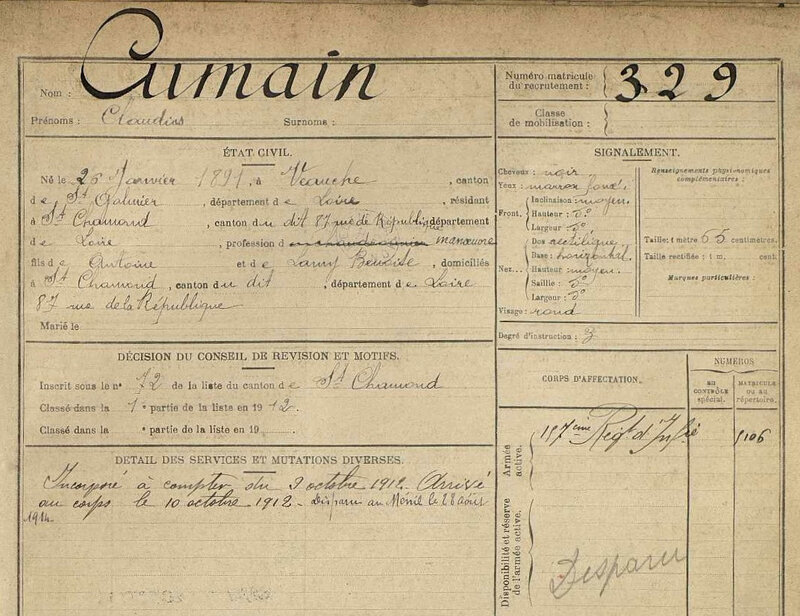 Nom : Cumain
Prénoms : Claudius Surnoms :
Numéro matricule
du recrutement : 329
Classe
de mobilisation :
ÉTAT CIVIL.
Né le 26 Janvier 1891, à Veauche, canton
de St Galmier, département de Loire, résidant
à St Chamond, canton du dit 87 rue de République département
de Loire, profession d manœuvre
fils de Antoine et de Lamy, domiciliés
à St Chamond, canton du dit, département de Loire
87 rue de la République
Marié le
SIGNALEMENT.
Cheveux : noir
Yeux : marron foncé
Front. Inclinaison : moyen
Hauteur : do
Largeur : do
Nez. Dos rectiligne
Base : horizontal
Hauteur : moyen
Saillie : do
Largeur : do
Visage : rond
Renseignements physionomiques
complémentaires :
Taille : 1 mètre 65 centimètres.
Taille rectifiée : 1 m. cent.
Marques particulières :
Degré d'instruction : 3
DÉCISION DU CONSEIL DE REVISION ET MOTIFS.
Inscrit sous le n° 72 de la liste du canton de St Chamond
Classé dans la 1e partie de la liste en 1912.
Classé dans la e partie de la liste en 19
DÉTAIL DES SERVICES ET MUTATIONS DIVERSES.
Incorporé à compter du 9 octobre 1912. Arrivé
au corps le 10 octobre 1912. Disparu au Ménil le 28 août
1914.
CORPS D'AFFECTATION.
NUMÉROS
AU
CONTRÔLE
spécial.
MATRICULE
ou au
répertoire.
Armée
active.
157ème Régt d'Infie
Disponibilité et réserve
de l'armée active.
Disparu